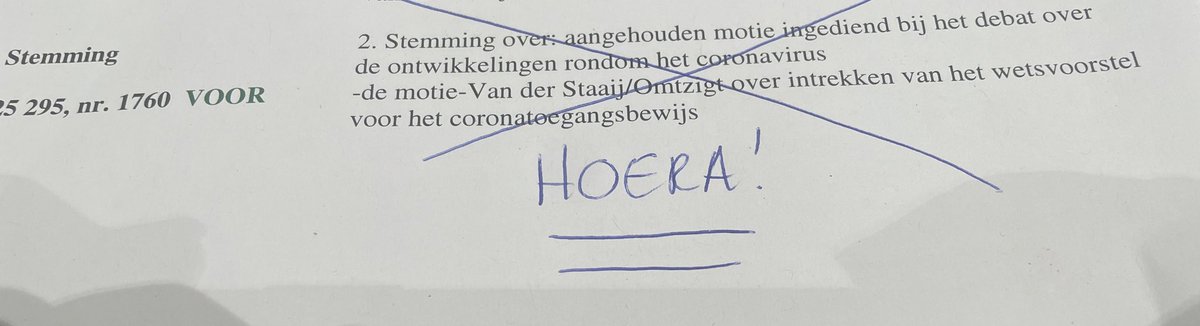 Stemming
25 295, nr. 1760 VOOR
2. Stemming over: aangehouden motie ingediend bij het debat over
de ontwikkelingen rondom het coronavirus
-de motie-Van der Staaij/Omtzigt over intrekken van het wetsvoorstel
voor het coronatoegangsbewijs
HOERA!